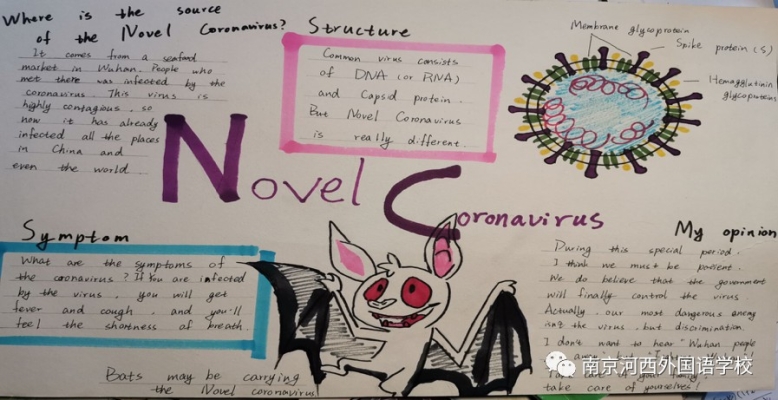 Where is the source
of the Novel Coronavirus?
It comes from a seafood
market in Wuhan. People who
met there was infected by the
coronavirus. This virus is
highly contagious, so
now it has already
infected all the places
in China and
even the world.
Structure
Common virus consists
of DNA (or RNA)
and Capsid protein.
But Novel Coronavirus
is really different.
Membrane glycoprotein
Spike protein (S)
Hemagglutinin
glycoproteins
Novel
Coronavirus
Symptom
What are the symptoms of
the coronavirus? If you are infected
by the virus, you will get
fever and cough, and you'll
feel the shortness of breath.
Bats may be carrying
the Novel coronavirus
My opinion
During this special period,
I think we must be patient.
We do believe that the government
will finally control the virus
Actually, our most dangerous enemy
isn't the virus, but discrimination.
I don't want to hear "Wuhan people
take care of yourselves!
南京河西外国语学校